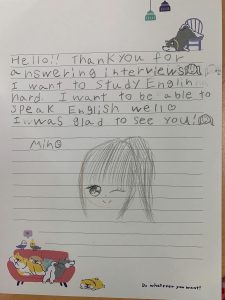 Hello!! Thank You for
answering interviews
I want to study English
hard. I want to be able to
speak English well
I...was glad to see you!
Miho
Do whatever you want!